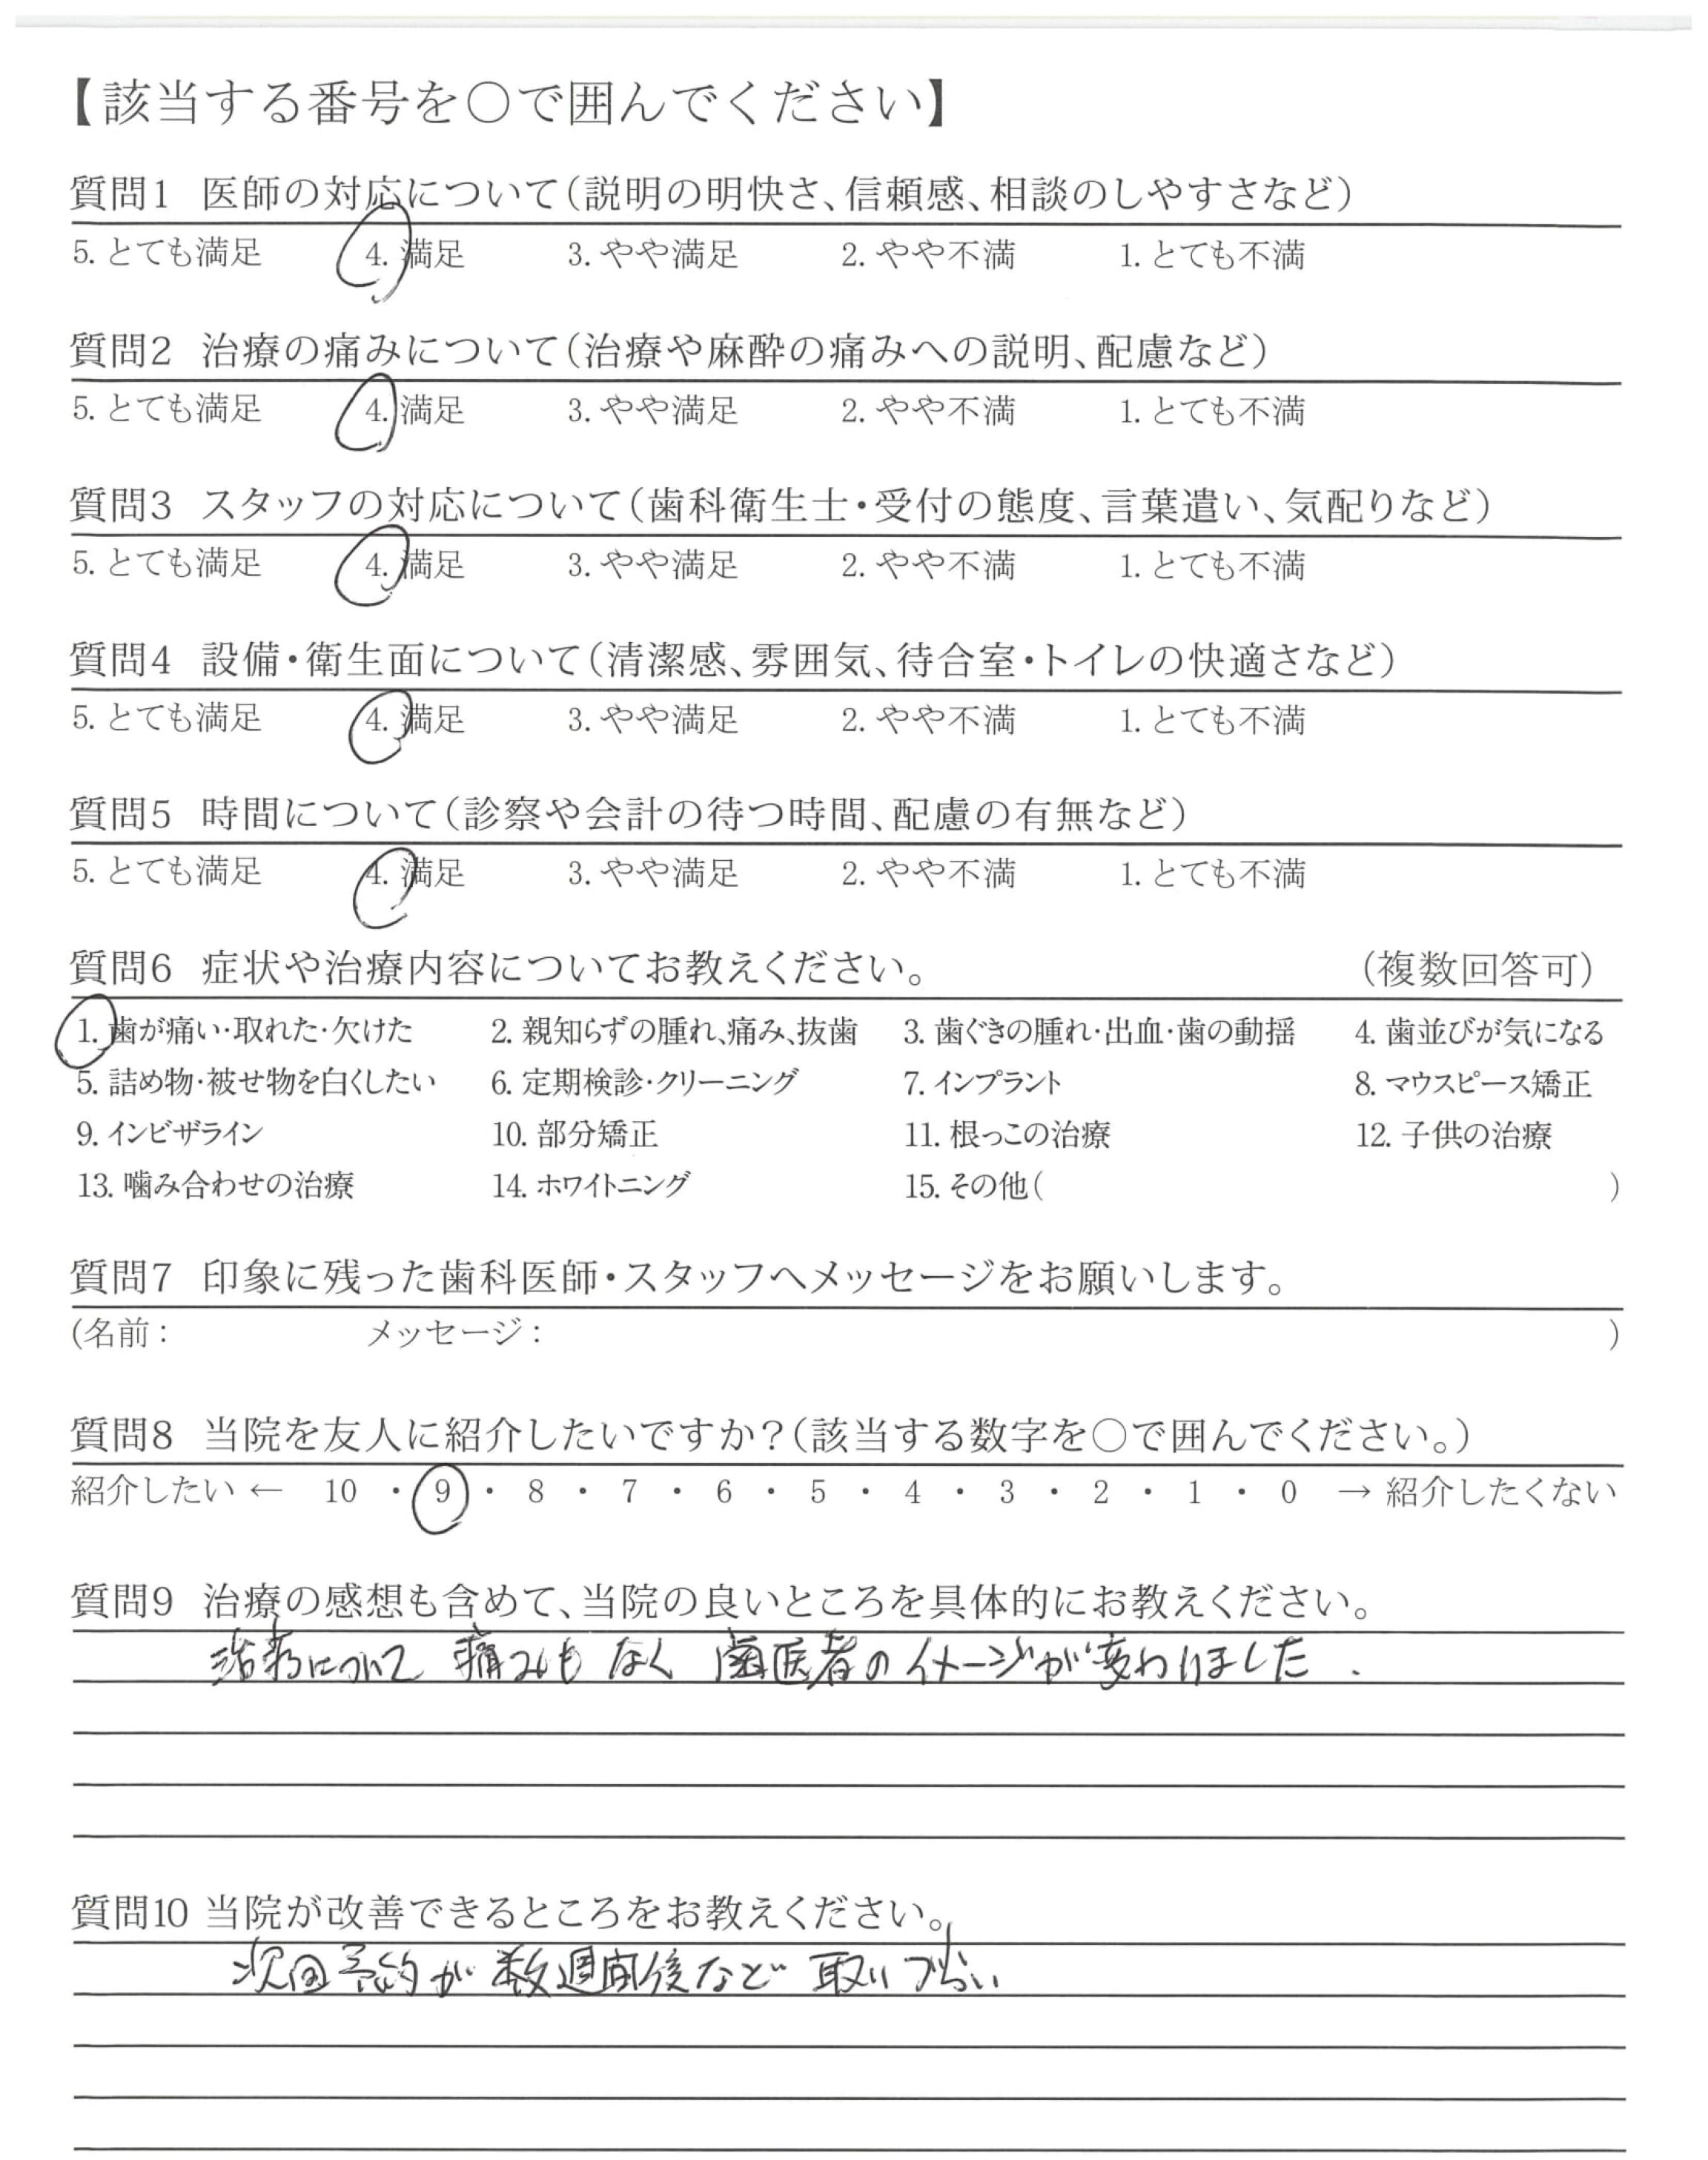 【該当する番号を○で囲んでください】
質問1 医師の対応について(説明の明快さ、信頼感、相談のしやすさなど)
5. とても満足 4. 満足 3. やや満足 2. やや不満 1. とても不満
質問2 治療の痛みについて(治療や麻酔の痛みへの説明、配慮など)
5. とても満足 4. 満足 3. やや満足 2. やや不満 1. とても不満
質問3 スタッフの対応について(歯科衛生士・受付の態度、言葉遣い、気配りなど)
5. とても満足 4. 満足 3. やや満足 2. やや不満 1. とても不満
質問4 設備・衛生面について(清潔感、雰囲気、待合室・トイレの快適さなど)
5. とても満足 4. 満足 3. やや満足 2. やや不満 1. とても不満
質問5 時間について(診察や会計の待つ時間、配慮の有無など)
5. とても満足 4. 満足 3. やや満足 2. やや不満 1. とても不満
質問6 症状や治療内容についてお教えください。 (複数回答可)
1. 歯が痛い・取れた・欠けた 2. 親知らずの腫れ、痛み、抜歯 3. 歯ぐきの腫れ・出血・歯の動揺 4. 歯並びが気になる
5. 詰め物・被せ物を白くしたい 6. 定期検診・クリーニング 7. インプラント 8. マウスピース矯正
9. インビザライン 10. 部分矯正 11. 根っこの治療 12. 子供の治療
13. 噛み合わせの治療 14. ホワイトニング 15. その他( )
質問7 印象に残った歯科医師・スタッフへメッセージをお願いします。
(名前: メッセージ: )
質問8 当院を友人に紹介したいですか?(該当する数字を○で囲んでください。)
紹介したい ← 10 ・ 9 ・ 8 ・ 7 ・ 6 ・ 5 ・ 4 ・ 3 ・ 2 ・ 1 ・ 0 → 紹介したくない
質問9 治療の感想も含めて、当院の良いところを具体的にお教えください。
治療について 痛みもなく 歯医者のイメージが変わりました.
質問10 当院が改善できるところをお教えください。
次回予約が数週間後など 取りづらい